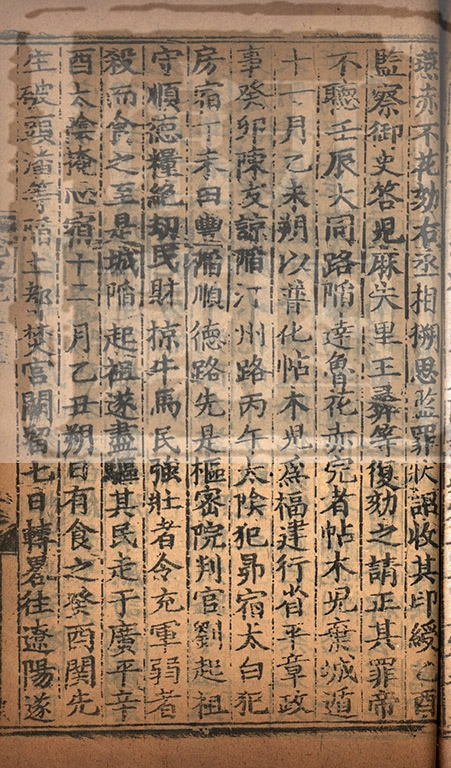 燕赤不花劾右丞相搠思監罪狀詔收其印綬乙酉
監察御史答児麻失里王彛等復劾之請正其罪帝
不聽壬辰大同路陷達魯花赤完者帖木児棄城遁
十一月乙未朔以普化帖木児爲福建行省平章政
事癸卯陳友諒陷汀州路丙午太陰犯昴宿太白犯
房宿丁未田豐陷順德路先是樞密院判官劉起祖
守順德糧絶劫民財掠牛馬民強壯者令充軍弱者
殺而食之至是城陷起祖遂盡驅其民走于廣平辛
酉太陰掩心宿十二月乙丑朔日有食之癸酉関先
生破頭潘等陷上都焚宮闕留七日轉畧往遼陽遂